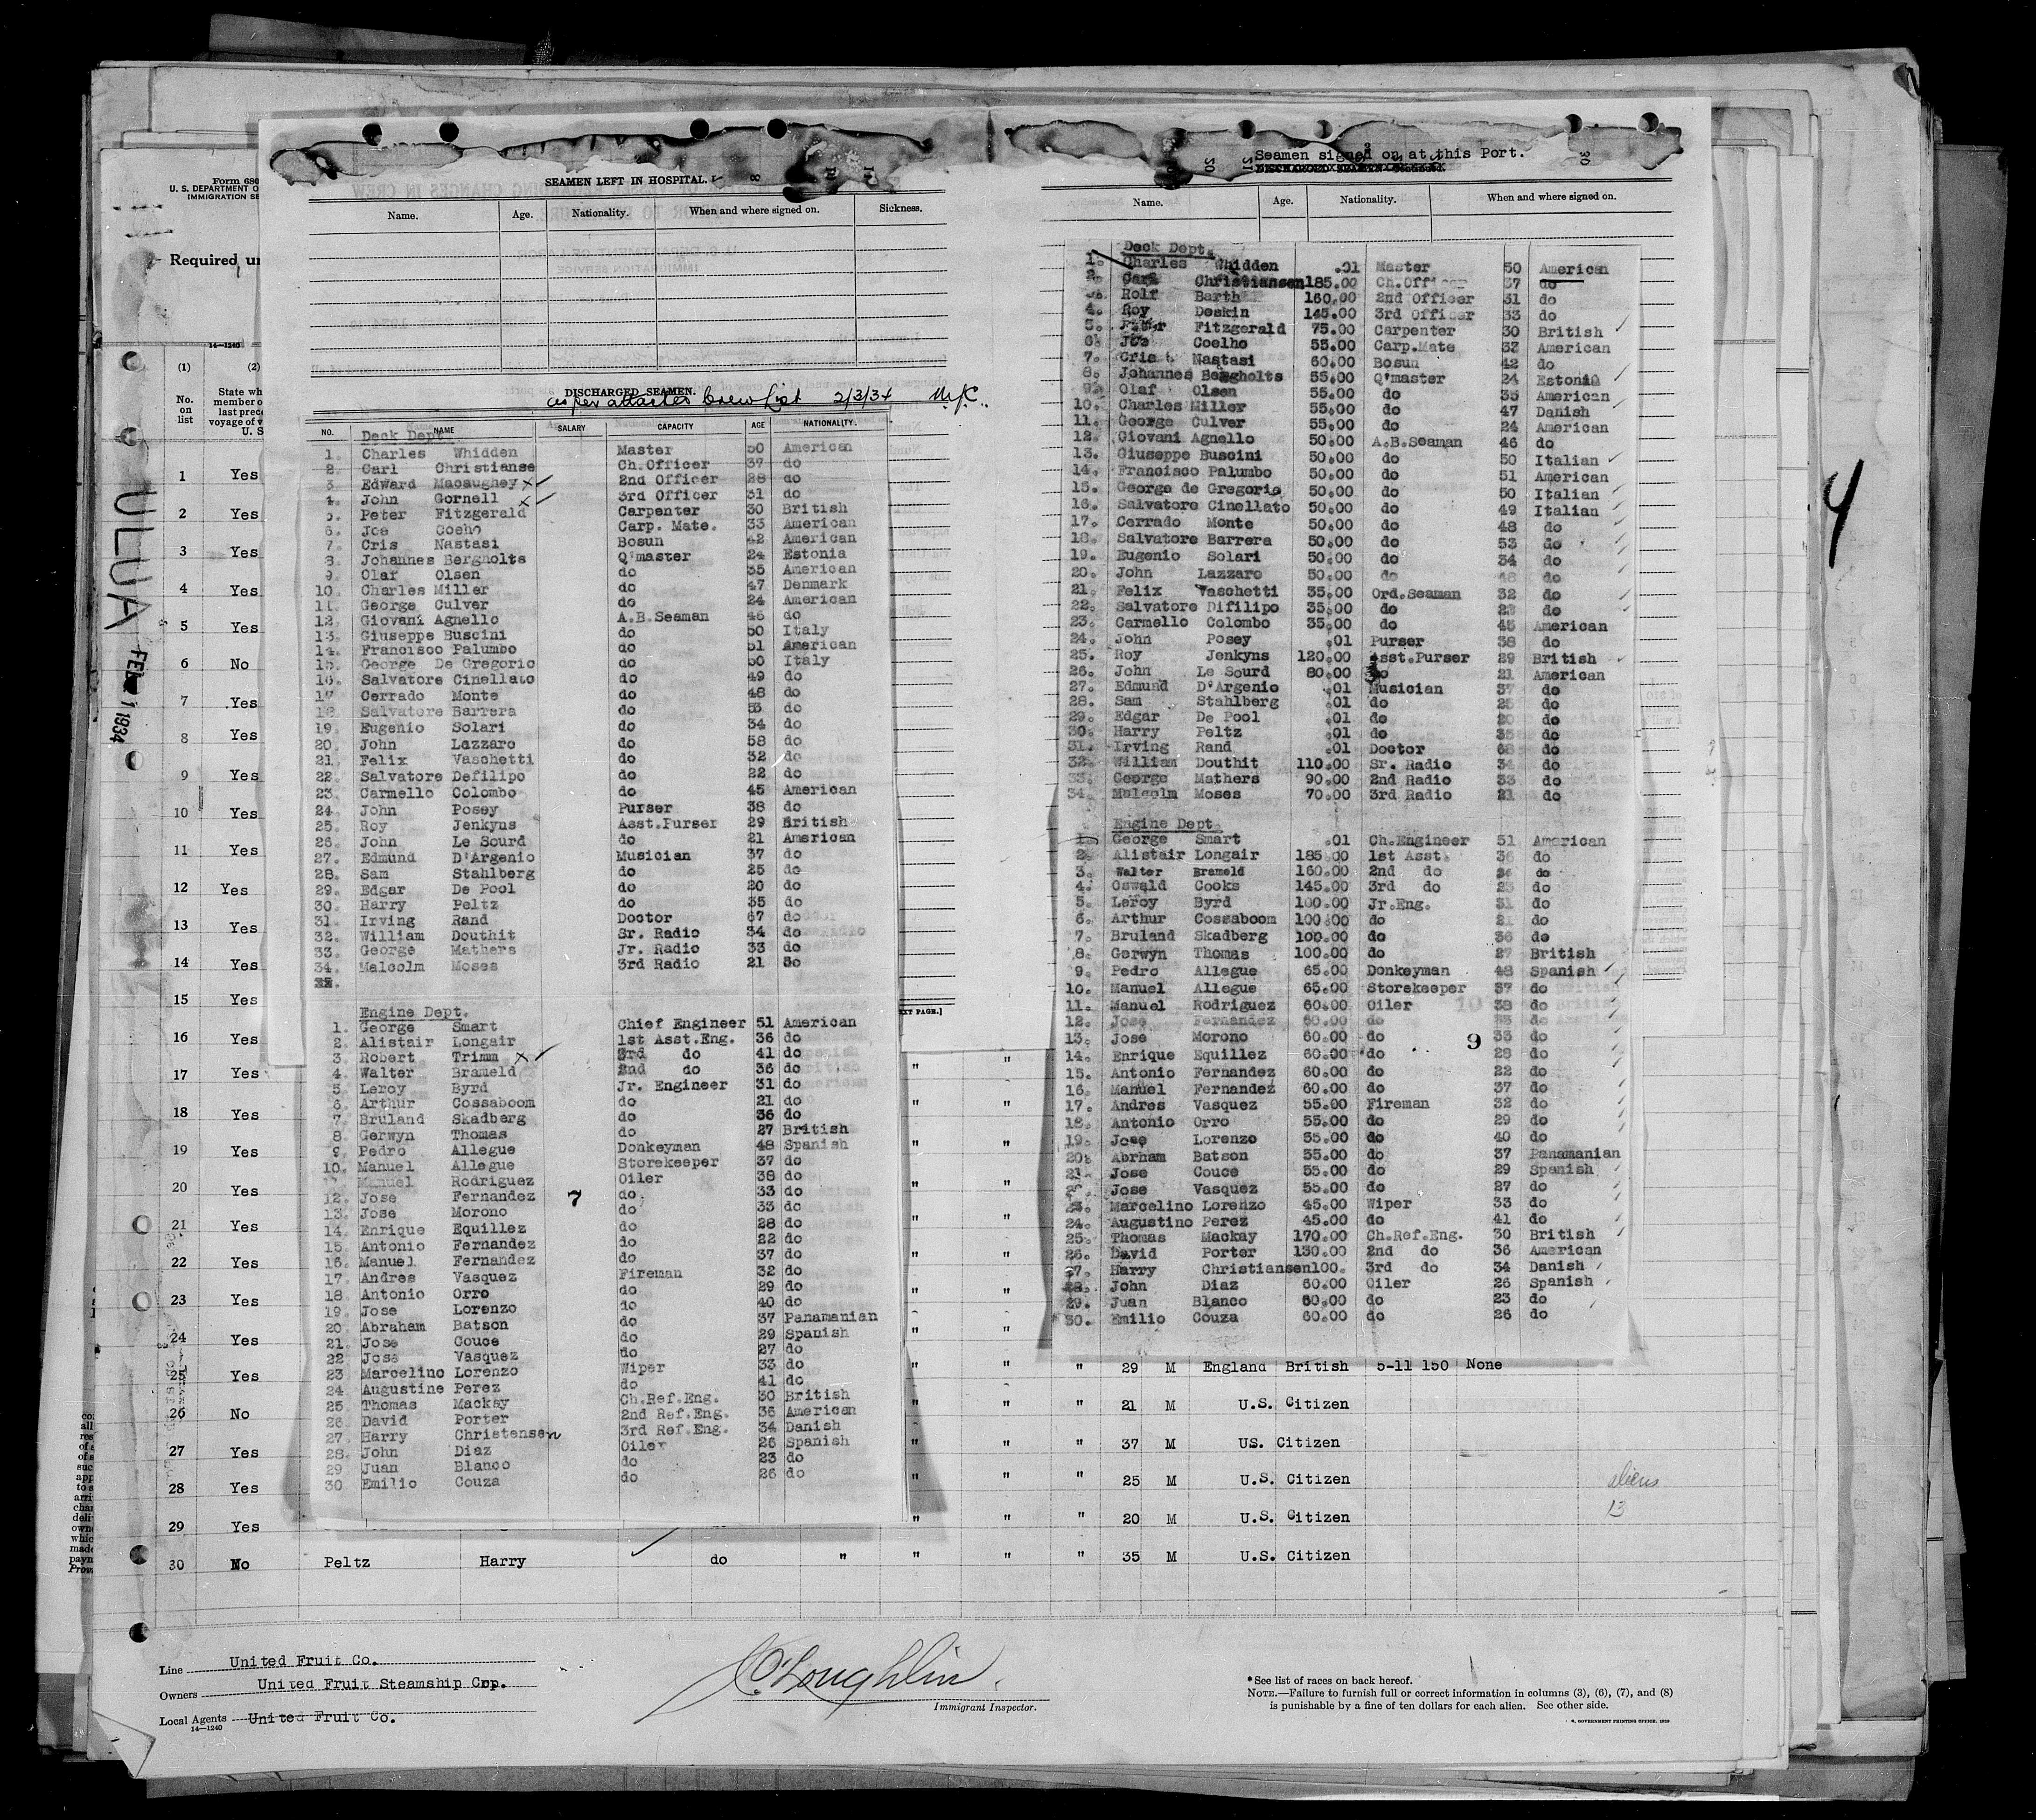 Form 680
U. S. DEPARTMENT O
IMMIGRATION SE
Required un
14—1240
(1) (2)
No. on list
State wh
member o
last prece
voyage of v
U. S
1 Yes
2 Yes
3 Yes
4 Yes
5 Yes
6 No
7 Yes
8 Yes
9 Yes
10 Yes
11 Yes
12 Yes
13 Yes
14 Yes
15 Yes
16 Yes
17 Yes
18 Yes
19 Yes
20 Yes
21 Yes
22 Yes
23 Yes
24 Yes
25 Yes
26 No
27 Yes
28 Yes
29 Yes
30 No
ULUA
FEB 1 1934
SEAMEN LEFT IN HOSPITAL.
Name. Age. Nationality. When and where signed on. Sickness.
DISCHARGED SEAMEN.
as per attached Crew List 2/3/34
NO. NAME SALARY CAPACITY AGE NATIONALITY.
Deck Dept.
1. Charles Whidden Master 50 American
2. Carl Christianse Ch.Officer 37 do
3. Edward Macaughey x✓ 2nd Officer 28 do
4. John Gornell x✓ 3rd Officer 31 do
5. Peter Fitzgerald Carpenter 30 British
6. Joe Coeho Carp. Mate. 33 American
7. Cris Nastasi Bosun 42 American
8. Johannes Bergholts Q'master 24 Estonia
9. Olaf Olsen do 35 American
10. Charles Miller do 47 Denmark
11. George Culver do 24 American
12. Giovani Agnello A.B.Seaman 46 do
13. Giuseppe Buscini do 50 Italy
14. Francisco Palumbo do 51 American
15. George De Gregorio do 50 Italy
16. Salvatore Cinellato do 49 do
17 Cerrado Monte do 48 do
18. Salvatore Barrera do 53 do
19. Eugenio Solari do 34 do
20. John Lazzaro do 58 do
21. Felix Vaschetti do 32 do
22. Salvatore Defilipo do 22 do
23. Carmello Colombo do 45 American
24. John Posey Purser 38 do
25. Roy Jenkyns Asst.Purser 29 British
26. John Le Sourd do 21 American
27. Edmund D'Argenio Musician 37 do
28. Sam Stahlberg do 25 do
29. Edgar De Pool do 20 do
30. Harry Peltz do 35 do
31. Irving Rand Doctor 67 do
32. William Douthit Sr. Radio 34 do
33. George Mathers Jr. Radio 33 do
34. Malcolm Moses 3rd Radio 21 do
Engine Dept.
1. George Smart Chief Engineer 51 American
2. Alistair Longair 1st Asst.Eng. 36 do
3. Robert Trimm x✓ 3rd do 41 do
4. Walter Brameld 2nd do 36 do
5. Leroy Byrd Jr. Engineer 31 do
6. Arthur Cossaboom do 21 do
7. Bruland Skadberg do 36 do
8. Gerwyn Thomas do 27 British
9. Pedro Allegue Donkeyman 48 Spanish
10. Manuel Allegue Storekeeper 37 do
Manuel Rodriguez Oiler 38 do
12. Jose Fernandez 7 do 33 do
13. Jose Morono do 33 do
14. Enrique Equillez do 28 do
15. Antonio Fernandez do 22 do
16. Manuel Fernandez do 37 do
17. Andres Vasquez Fireman 32 do
18. Antonio Orro do 29 do
19. Jose Lorenzo do 40 do
20. Abraham Batson do 37 Panamanian
21. Jose Couce do 29 Spanish
22 Jose Vasquez do 27 do
23 Marcelino Lorenzo Wiper 33 do
24. Augustine Perez do 41 do
25. Thomas Mackay Ch.Ref.Eng. 30 British
26. David Porter 2nd Ref.Eng. 36 American
27. Harry Christensen 3rd Ref.Eng. 34 Danish
28. John Diaz Oiler 26 Spanish
29 Juan Blanco do 23 do
30 Emilio Couza do 26 do
Seamen signed on at this Port.
DISCHARGED SEAMEN
Name. Age. Nationality. When and where signed on.
Deck Dept.
1. Charles Whidden .01 Master 50 American
2. Carl Christiansen 185.00 Ch.Officer 37 do
3. Rolf Barth 160.00 2nd Officer 31 do
4. Roy Deskin 145.00 3rd Officer 33 do
5. Peter Fitzgerald 75.00 Carpenter 30 British ✓
6. Joe Coelho 55.00 Carp.Mate 33 American
7. Cris Nastasi 60.00 Bosun 42 do
8. Johannes Bergholts 55.00 Q'master 24 Estonia ✓
9. Olaf Olsen 55.00 do 35 American
10. Charles Miller 55.00 do 47 Danish ✓
11. George Culver 55.00 do 24 American
12. Giovani Agnello 50.00 A.B.Seaman 46 do
13. Giuseppe Buscini 50.00 do 50 Italian ✓
14. Francisco Palumbo 50.00 do 51 American
15. George de Gregorio 50.00 do 50 Italian ✓
16. Salvatore Cinellato 50.00 do 49 Italian ✓
17. Cerrado Monte 50.00 do 48 do ✓
18. Salvatore Barrera 50.00 do 53 do ✓
19. Eugenio Solari 50.00 do 34 do ✓
20. John Lazzaro 50.00 do 48 do ✓
21. Felix Vaschetti 35.00 Ord.Seaman 32 do ✓
22. Salvatore Difilipo 35.00 do 22 do ✓
23. Carmello Colombo 35.00 do 45 American
24. John Posey .01 Purser 38 do
25. Roy Jenkyns 120.00 Asst.Purser 29 British ✓
26. John Le Sourd 80.00 do 21 American
27. Edmund D'Argenio .01 Musician 37 do
28. Sam Stahlberg .01 do 25 do
29. Edgar De Pool .01 do 20 do
30. Harry Peltz .01 do 35 do
31. Irving Rand .01 Doctor 68 do
32. William Douthit 110.00 Sr. Radio 34 do
33. George Mathers 90.00 2nd Radio 33 do
34. Malcolm Moses 70.00 3rd Radio 21 do
Engine Dept.
1. George Smart .01 Ch.Engineer 51 American
2. Alistair Longair 185.00 1st Asst. 36 do
3. Walter Brameld 160.00 2nd do do
4. Oswald Cooks 145.00 3rd do 23 do
5. Leroy Byrd 100.00 Jr.Eng. 31 do
6. Arthur Cossaboom 100.00 do 21 do
7. Bruland Skadberg 100.00 do 36 do
8. Gerwyn Thomas 100.00 do 27 British
9. Pedro Allegue 65.00 Donkeyman 48 Spanish ✓
10. Manuel Allegue 65.00 Storekeeper 37 do
11. Manuel Rodriguez 60.00 Oiler 38 do
12. Jose Fernandez 60.00 do 33 do
13. Jose Morono 60.00 do 9 33 do
14. Enrique Equillez 60.00 do 28 do
15. Antonio Fernandez 60.00 do 22 do
16. Manuel Fernandez 60.00 do 37 do
17. Andres Vasquez 55.00 Fireman 32 do
18. Antonio Orro 55.00 do 29 do
19. Jose Lorenzo 55.00 do 40 do
20. Abrham Batson 55.00 do 37 Panamanian
21. Jose Couce 55.00 do 29 Spanish
Jose Vasquez 55.00 do 27 do
23. Marcelino Lorenzo 45.00 Wiper 33 do
24. Augustino Perez 45.00 do 41 do
25. Thomas Mackay 170.00 Ch.Ref.Eng. 30 British
26. David Porter 130.00 2nd do 36 American
27. Harry Christiansen 100. 3rd do 34 Danish
28. John Diaz 60.00 Oiler 26 Spanish
29. Juan Blanco 60.00 do 23 do
30. Emilio Couza 60.00 do 26 do
4
EXT PAGE.]
" " " 29 M England British 5-11 150 None
" " " 21 M U.S. Citizen
" " " 37 M US. Citizen
" " " 25 M U.S. Citizen
" " " 20 M U.S. Citizen
Peltz Harry ✓ do " " " " 35 M U.S. Citizen
aliens
13
Line United Fruit Co.
Owners United Fruit Steamship Crp.
Local Agents United Fruit Co.
14—1240
O'Loughlin.
Immigrant Inspector.
* See list of races on back hereof.
NOTE.—Failure to furnish full or correct information in columns (3), (6), (7), and (8)
is punishable by a fine of ten dollars for each alien. See other side.